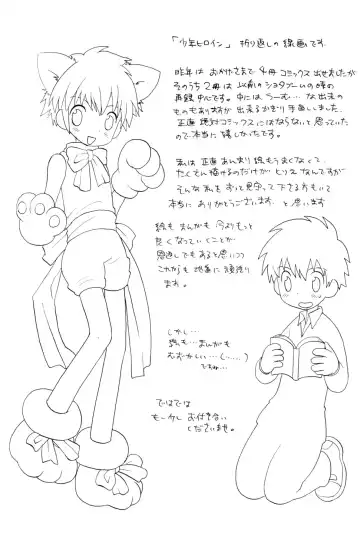 「少年ヒロイン」 折り返しの線画です
昨年は おかげさまで 4冊 コミックス 出せましたが
そのうち 2冊は 以前の ショタブームの時の
再録 中心です。 中には らーむ… な出来の
ものまで が 出来るかぎり 手直ししました。
正直 絶対 コミックスにはならないと思っていた
ので 本当に 嬉しかったです。
私は 正直 あんまり 絵も うまくなくて、
たくさん描けるのだけが とりえ なんですが
そんな 私を ずっと 見守って 下さる方もいて
本当に ありがとうございます。 と 思います
絵も まんがも 今よりもっと
良くなっていくことが
恩返しでもあると思いつつ
これからも 地道に 頑張り
ます。
しかし…
絵も…まんがも
むずかしい…(……)
ですね…
ではでは
もー少し お付き合い
くださいませ。